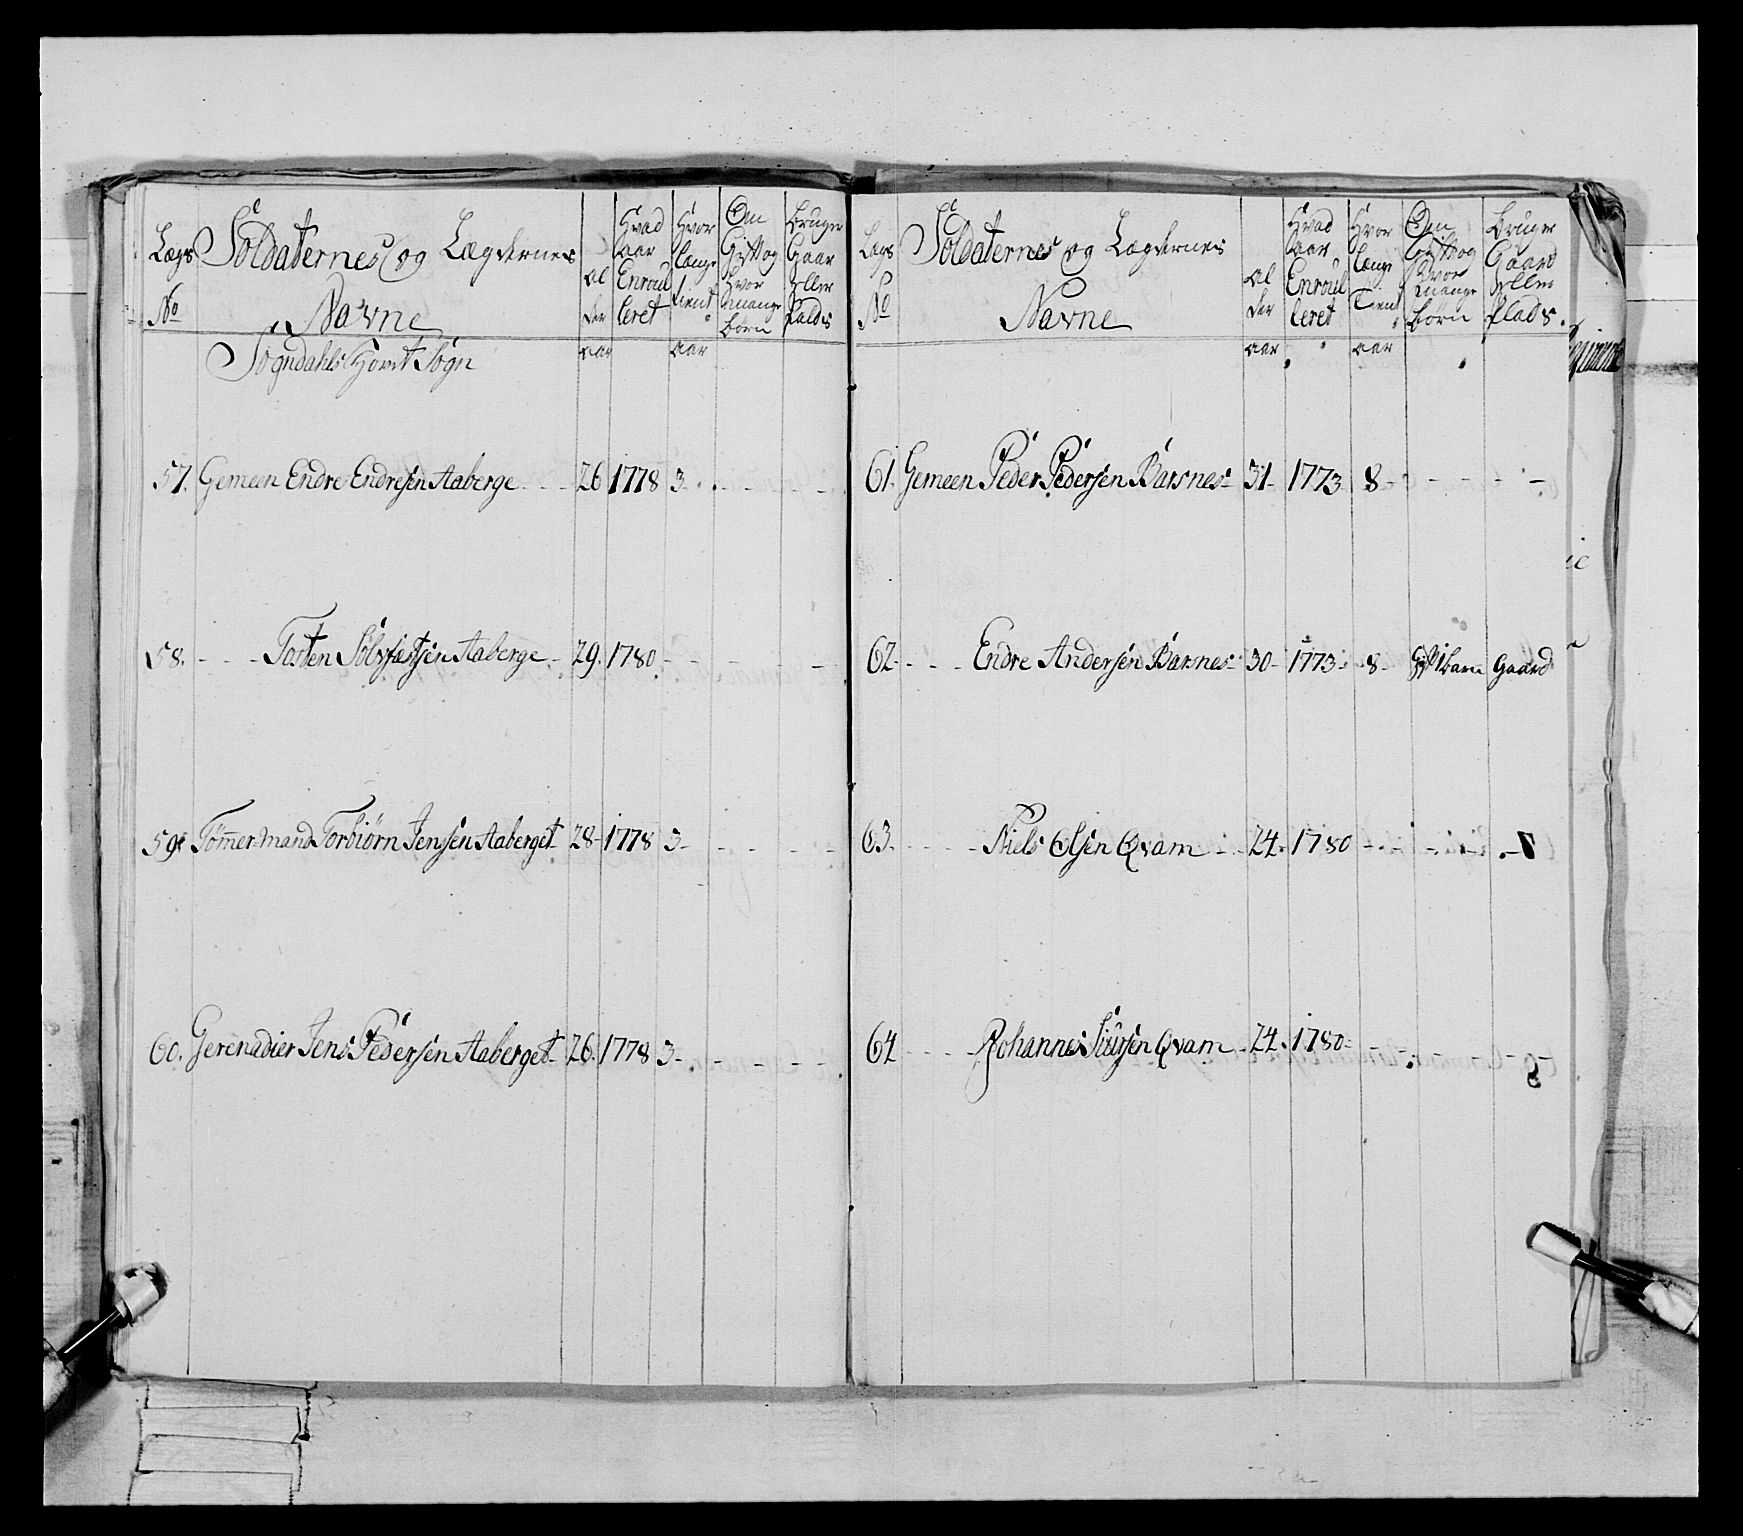 Lægs No
Soldaternes og Lægdernes Navne
Al der
Hvad aar Enroul leret
Hvor længe tient
Om Gift og hvor mange børn
Bruger Gaar eller Pladts
Sogndahls Hovet Sogn aar aar
57. Gemeen Endre Endresen Aaberge - - 26 1778 3 - - - -
58. - - - Tosten Sølvfæstsen Aaberge - 29. 1780 - - - - -
59. Tømmer-mand Torbiørn Jensen Aaberget 28 - 1778 3 - - - -
60. Gerenadier Jens Pedersen Aaberget - 26. 1778 3 - - - -
Lægs No
Soldaternes og Lægdernes Navne
Al der
Hvad aar Enroul leret
Hvor længe Tient
Om Gift og hvor mange børn
Bruger Gaard eller plads.
aar aar
61. Gemeen Peder Pedersen Barsnes - 31 - 1773 8 - - - - -
62 - - - Endre Andersen Barnes 30 - 1773 - 8 - Gift 1 barn Gaard
63 - - - - Niels Olsen Qvam - - 24. 1780 - - - -
64 - - - - Johannes Siursen Qvam - 24. 1780 - - - - -